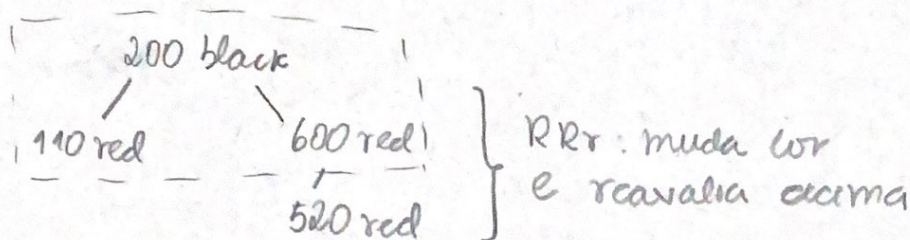 200 black
110 red 600 red
520 red
RRr: muda cor
e reavalia acima